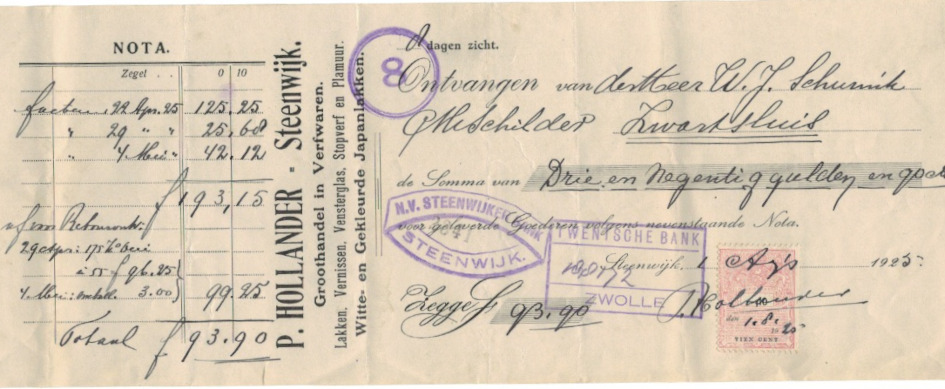 NOTA.
Zegel 0 10
factuur 22 Apr. 25 125.25
" 29 " " 25.68
" 4 Mei " 42.12
f 193,15
af
29 Apr:
à 55 f 96.25
4 Mei: 3.00 99.25
Totaal f 93.90
P. HOLLANDER - Steenwijk.
Groothandel in Verfwaren.
Lakken, Vernissen, Vensterglas, Stopverf en Plamuur.
Witte- en Gekleurde Japanlakken.
8
8 dagen zicht.
Ontvangen van de Heer W. J. Schurink
Schilder Zwartsluis
de Somma van Drie en Negentig gulden en 90
voor geleverde Goederen volgens nevenstaande Nota.
N.V. STEENWIJKER BANK
STEENWIJK.
TWENTSCHE BANK
ZWOLLE
Steenwijk, 1 Aug's 1925.
Zegge f 93.90 P. Hollander
1.8. 25
TIEN CENT